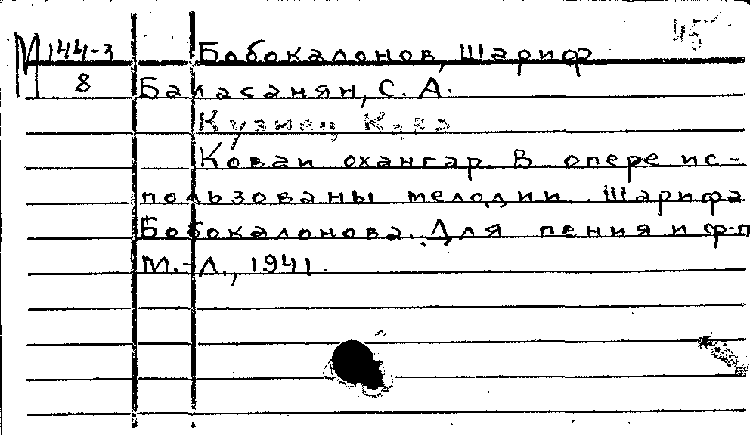 М 144-3 Бобокалонов, Шариф 45
8 Баласанян, С. А.
Кузнец Кова
Коваи охангар. В опере ис-
пользованы мелодии Шарифа
Бобокалонова. Для пения и ф-п
М.-Л., 1941.